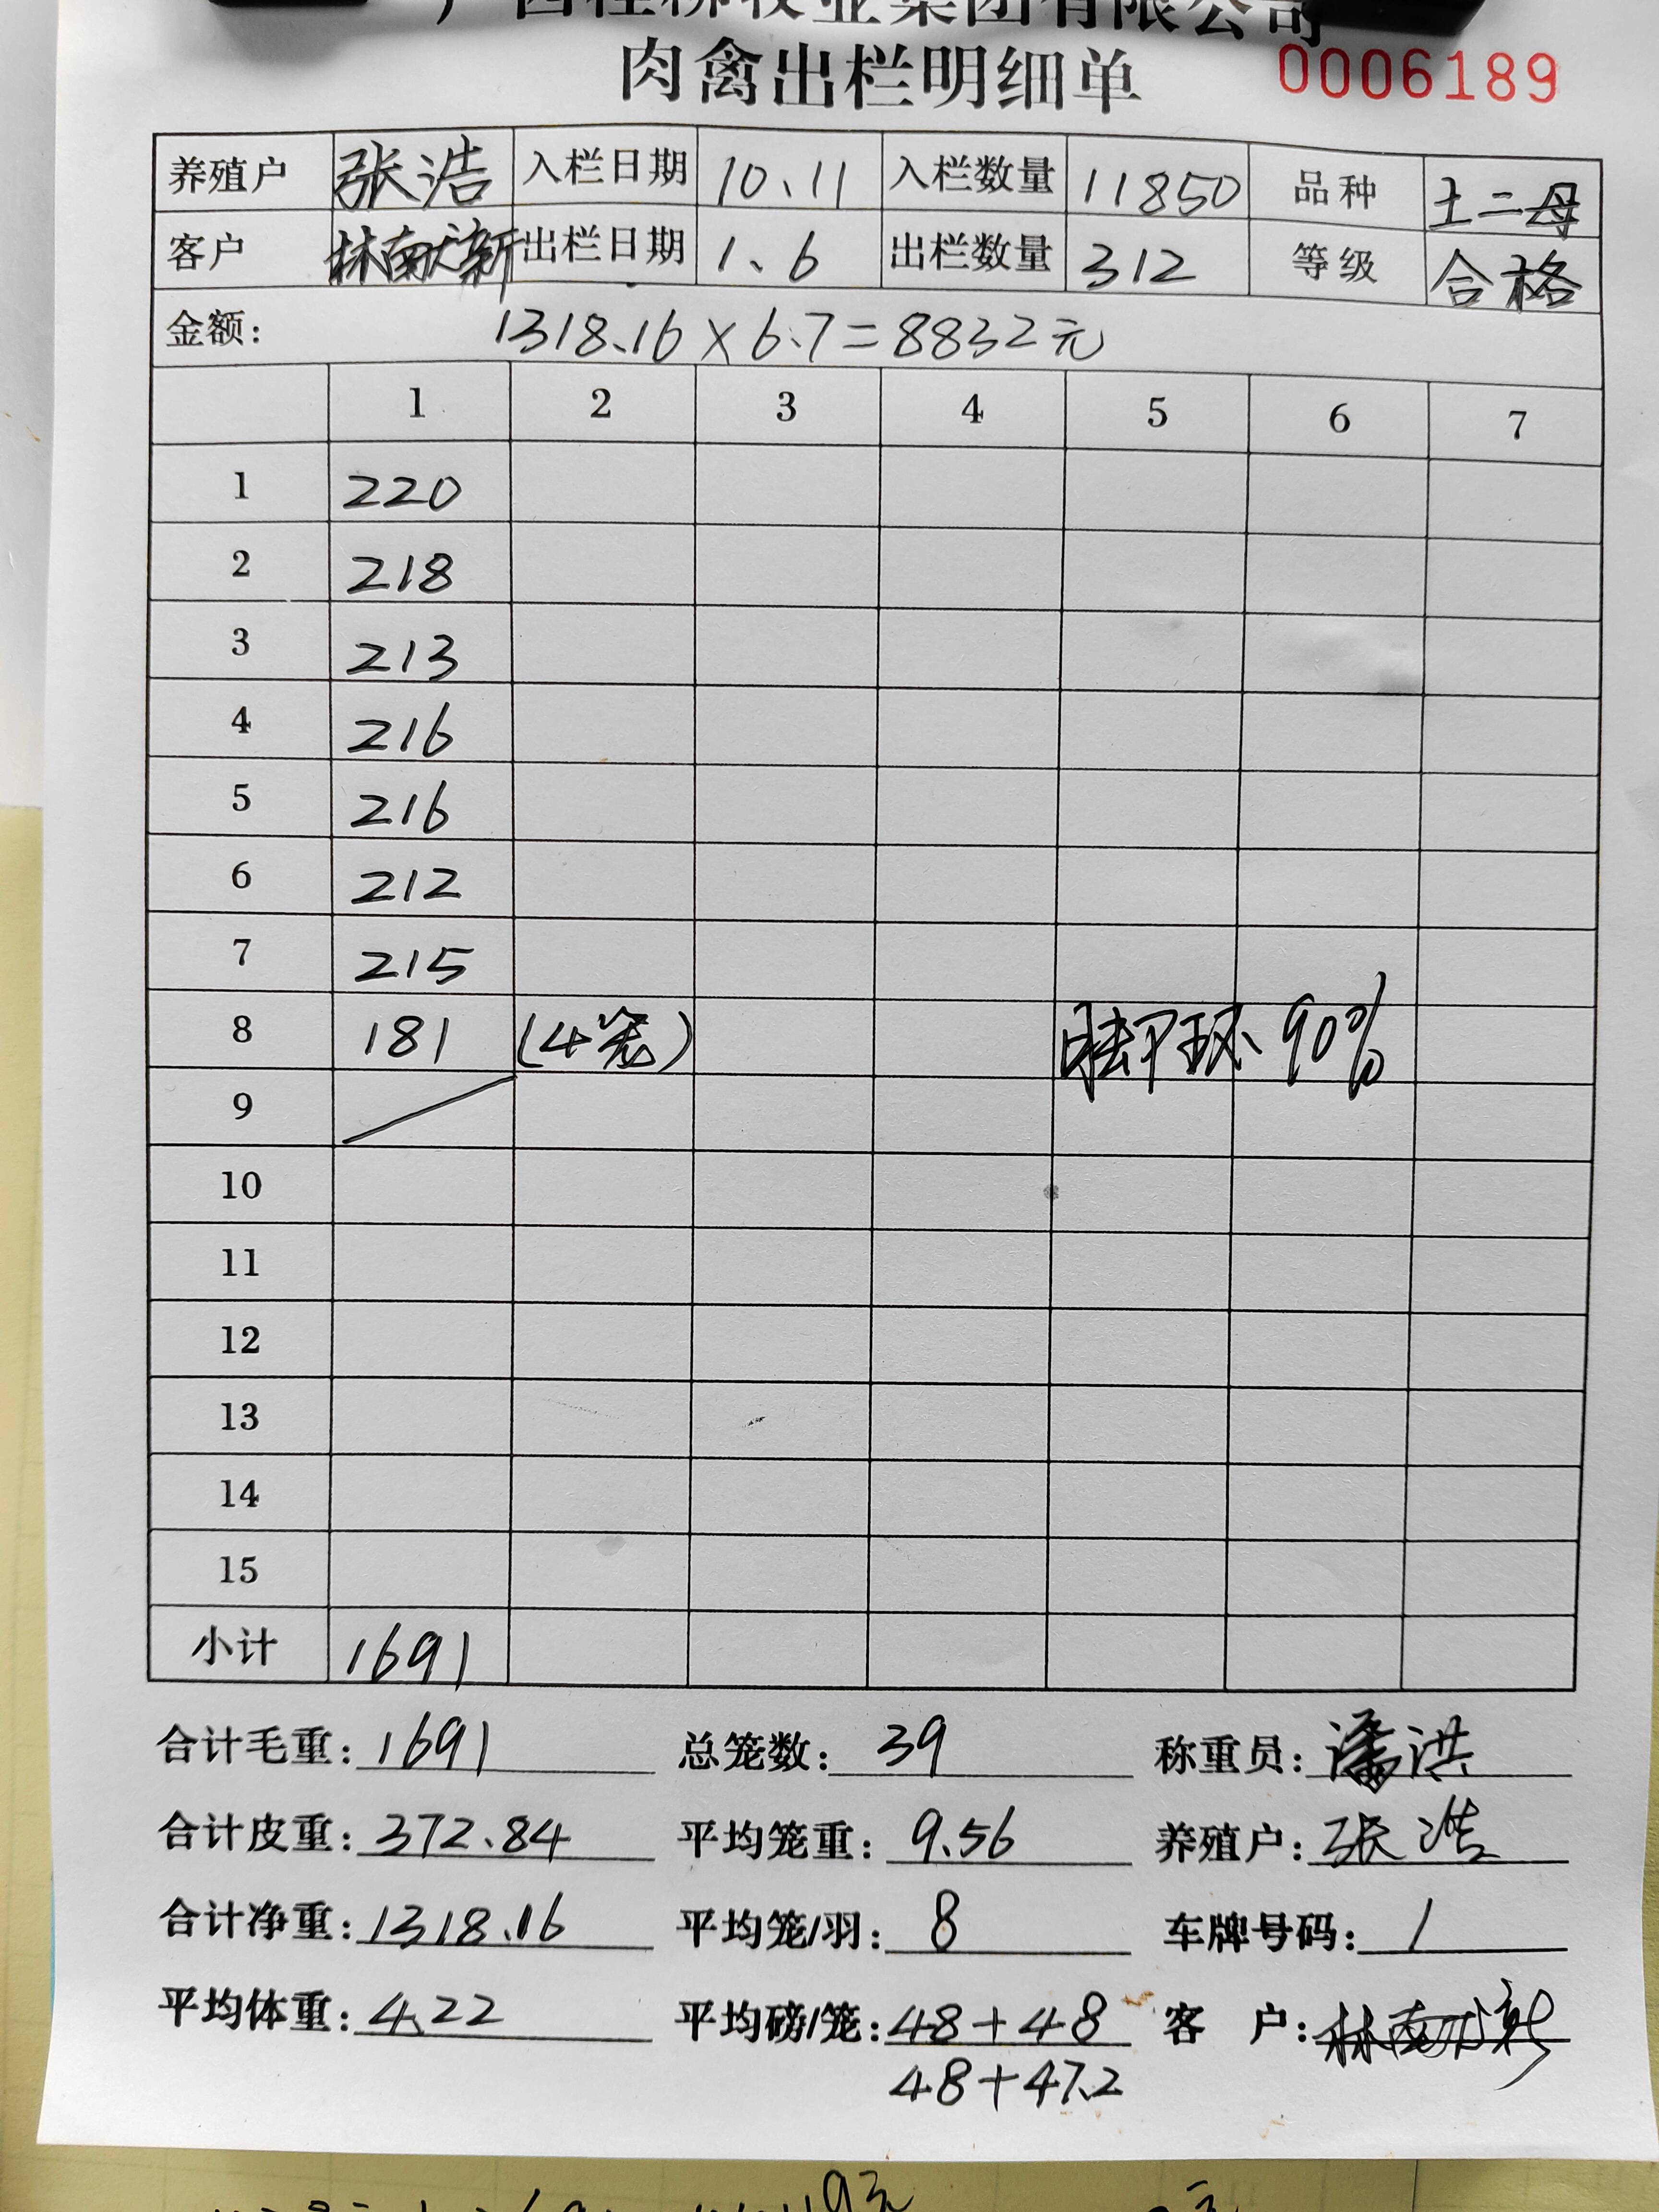 广西桂柳牧业集团有限公司
肉禽出栏明细单 0006189
养殖户 张浩 入栏日期 10、11 入栏数量 11850 品种 土二母
客户 林南新 出栏日期 1、6 出栏数量 312 等级 合格
金额: 1318.16×6.7=8832元
1 2 3 4 5 6 7
1 220
2 218
3 213
4 216
5 216
6 212
7 215
8 181 (4笼) 脚环 90%
9
10
11
12
13
14
15
小计 1691
合计毛重: 1691 总笼数: 39 称重员: 潘洪
合计皮重: 372.84 平均笼重: 9.56 养殖户: 张浩
合计净重: 1318.16 平均笼/羽: 8 车牌号码: /
平均体重: 4.22 平均磅/笼: 48+48 客 户:
48+47.2